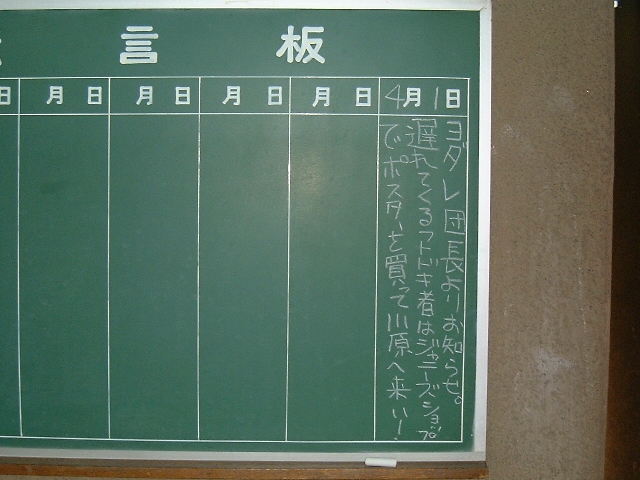 言板
4月1日
月日
月日
月日
月日
日
ヨダレ団長よりお知らせ。
遅れてくるフトドキ者はジャニーズショップ
でポスターを買って川原へ来い!